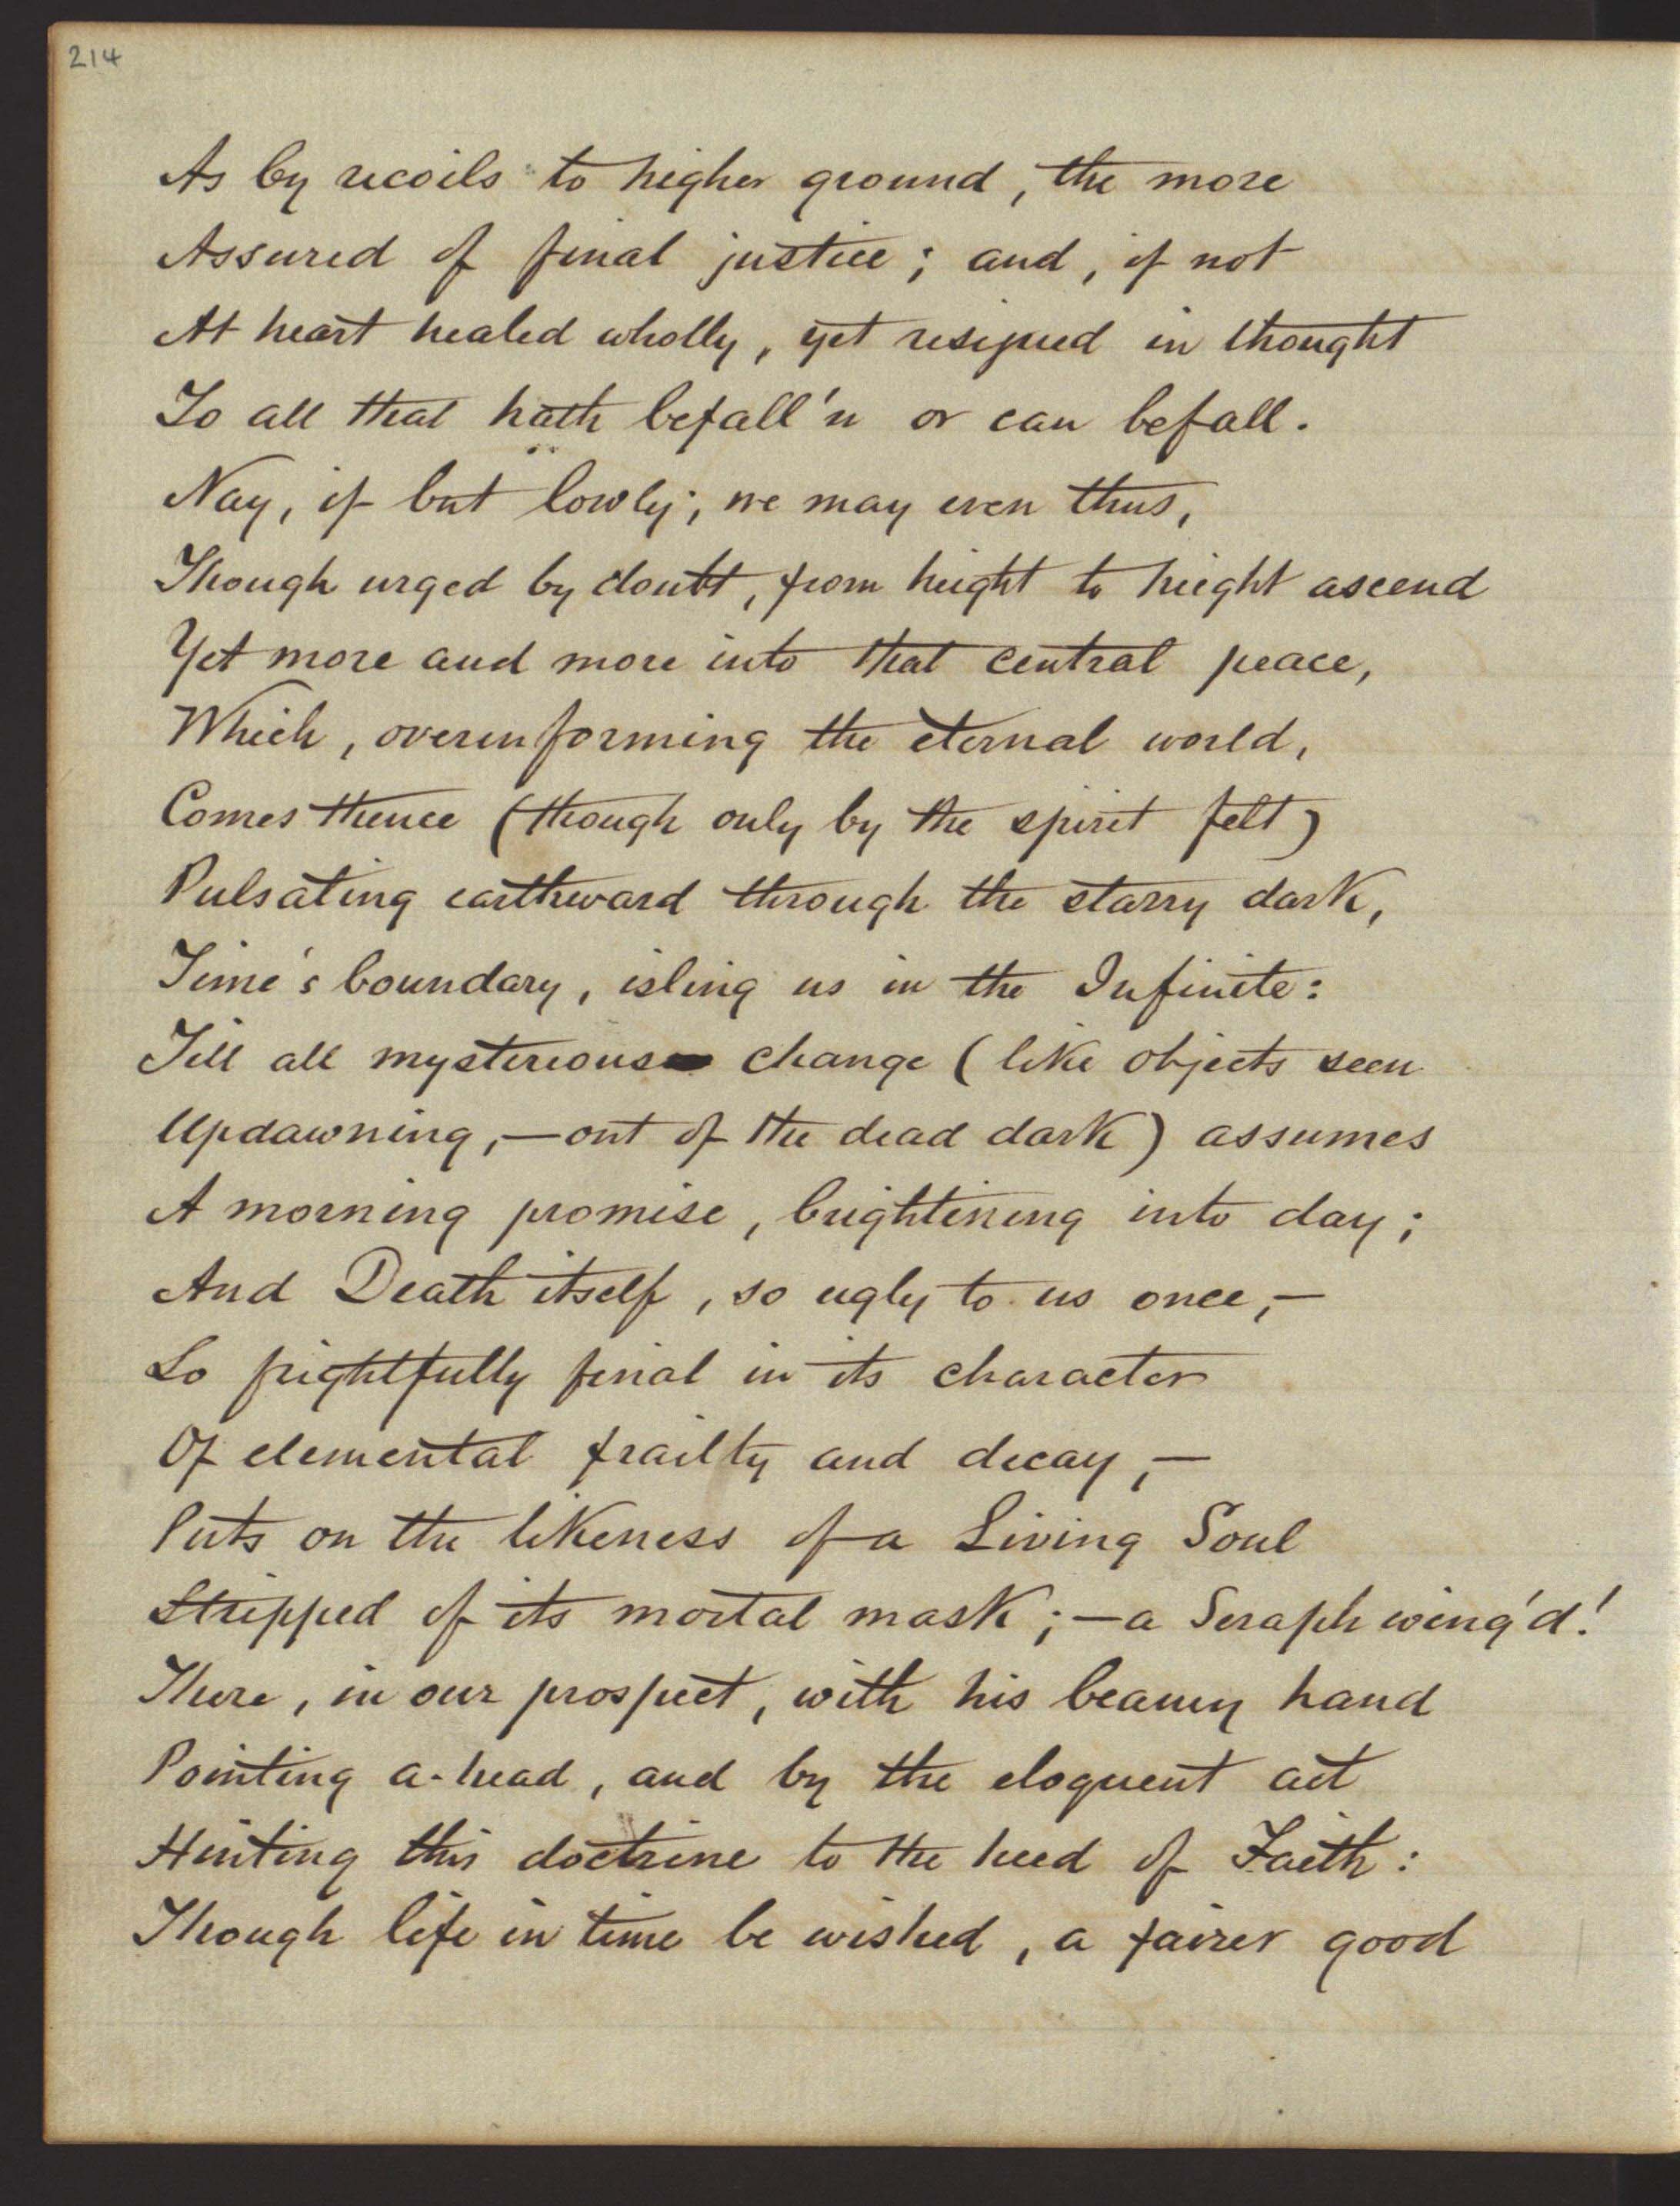 214
As by recoils to higher ground, the more
Assured of final justice; and, if not
At heart healed wholly, yet resigned in thought
To all that hath befall'n or can befall.
Nay, if but lowly; we may even thus,
Though urged by doubt, from height to height ascend
Yet more and more into that central peace,
Which, overinforming the eternal world,
Comes thence (though only by the spirit felt)
Pulsating earthward through the starry dark,
Time's boundary, isling us in the Infinite:
Till all mysterious change (like objects seen
Updawning,—out of the dead dark) assumes
A morning promise, brightening into day;
And Death itself, so ugly to us once,—
So frightfully final in its character
Of elemental frailty and decay,—
Puts on the likeness of a Living Soul
Stripped of its mortal mask;—a Seraph wing'd!
There, in our prospect, with his beamy hand
Pointing a-head, and by the eloquent act
Hinting this doctrine to the heed of Faith:
Though life in time be wished, a fairer good